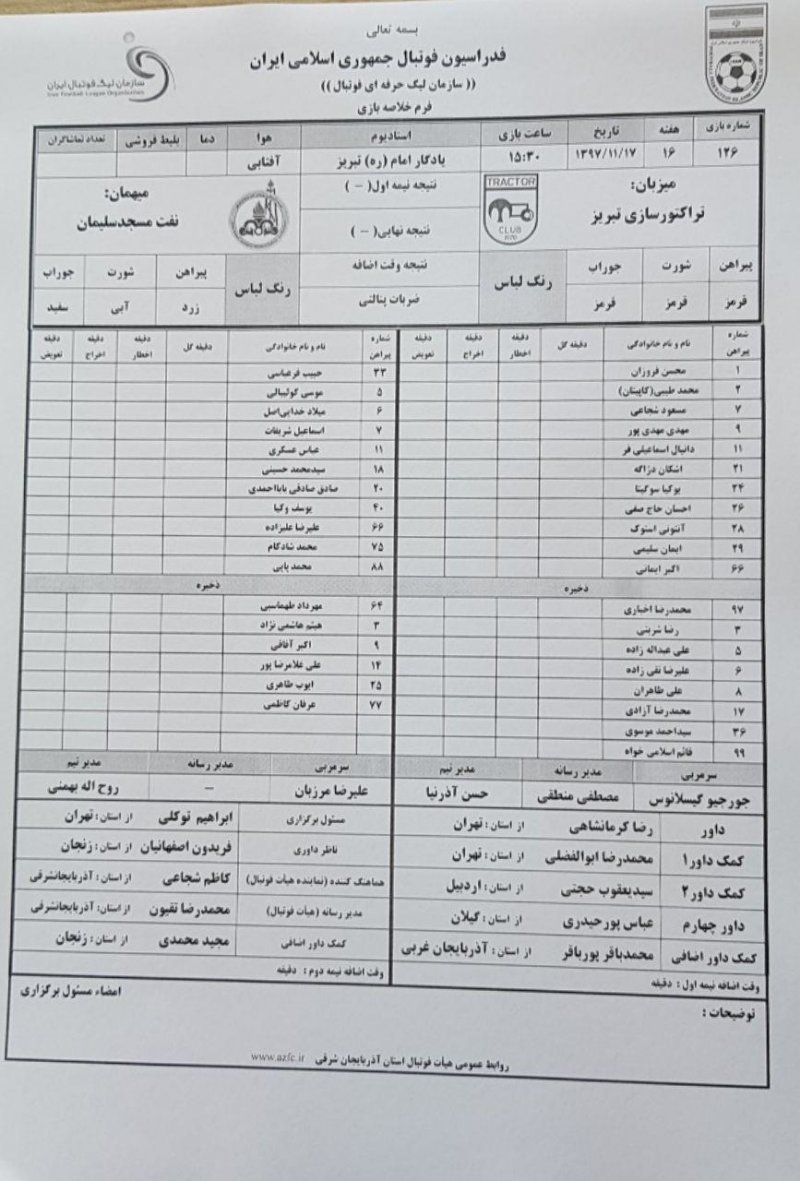 بسمه تعالی
فدراسیون فوتبال جمهوری اسلامی ایران
(( سازمان لیگ حرفه ای فوتبال ))
فرم خلاصه بازی
سازمان لیگ فوتبال ایران
Iran Football League Organization
شماره بازی هفته تاریخ ساعت بازی استادیوم هوا دما بلیط فروشی تعداد تماشاگران
۱۲۶ ۱۶ ۱۳۹۷/۱۱/۱۷ ۱۵:۳۰ یادگار امام (ره) تبریز آفتابی
میزبان:
تراکتورسازی تبریز
TRACTOR
CLUB
1970
نتیجه نیمه اول( – )
نتیجه نهایی( – )
میهمان:
نفت مسجدسلیمان
پیراهن شورت جوراب رنگ لباس نتیجه وقت اضافه رنگ لباس پیراهن شورت جوراب
قرمز قرمز قرمز ضربات پنالتی زرد آبی سفید
شماره پیراهن نام و نام خانوادگی دقیقه گل دقیقه اخطار دقیقه اخراج دقیقه تعویض شماره پیراهن نام و نام خانوادگی دقیقه گل دقیقه اخطار دقیقه اخراج دقیقه تعویض
۱ محسن فروزان ۳۳ حبیب فرعباسی
۲ محمد طیبی(کاپیتان) ۵ موسی کولیبالی
۷ مسعود شجاعی ۶ میلاد خدایی‌اصل
۹ مهدی مهدی پور ۷ اسماعیل شریفات
۱۱ دانیال اسماعیلی فر ۱۱ عباس عسکری
۲۱ اشکان دژاگه ۱۸ سیدمحمد حسینی
۲۴ یوکیا سوگیتا ۲۰ صادق صادقی بابااحمدی
۲۶ احسان حاج صفی ۴۰ یوسف وکیا
۲۸ آنتونی استوک ۶۶ علیرضا علیزاده
۲۹ ایمان سلیمی ۷۵ محمد شادکام
۶۶ اکبر ایمانی ۸۸ محمد پاپی
ذخیره ذخیره
۹۷ محمدرضا اخباری ۶۴ مهرداد طهماسبی
۳ رضا شربتی ۳ هیثم هاشمی نژاد
۵ علی عبداله زاده ۹ اکبر آفاقی
۶ علیرضا نقی زاده ۱۴ علی غلامرضا پور
۸ علی طاهران ۲۵ ایوب طاهری
۱۷ محمدرضا آزادی ۷۷ عرفان کاظمی
۳۶ سیداحمد موسوی
۹۹ قائم اسلامی خواه
سرمربی مدیر رسانه مدیر تیم سرمربی مدیر رسانه مدیر تیم
جورجیو گیسلانوس مصطفی منطقی حسن آذرنیا علیرضا مرزبان – روح اله بهمنی
داور رضا کرمانشاهی از استان : تهران مسئول برگزاری ابراهیم توکلی از استان : تهران
کمک داور۱ محمدرضا ابوالفضلی از استان : تهران ناظر داوری فریدون اصفهانیان از استان : زنجان
کمک داور۲ سیدیعقوب حجتی از استان : اردبیل هماهنگ کننده (نماینده هیأت فوتبال) کاظم شجاعی از استان: آذربایجانشرقی
داور چهارم عباس پورحیدری از استان : گیلان مدیر رسانه (هیأت فوتبال) محمدرضا تقیون از استان: آذربایجانشرقی
کمک داور اضافی محمدباقر پورباقر از استان : آذربایجان غربی کمک داور اضافی مجید محمدی از استان : زنجان
وقت اضافه نیمه اول : دقیقه وقت اضافه نیمه دوم : دقیقه
توضیحات : امضاء مسئول برگزاری
روابط عمومی هیأت فوتبال استان آذربایجان شرقی www.azfc.ir